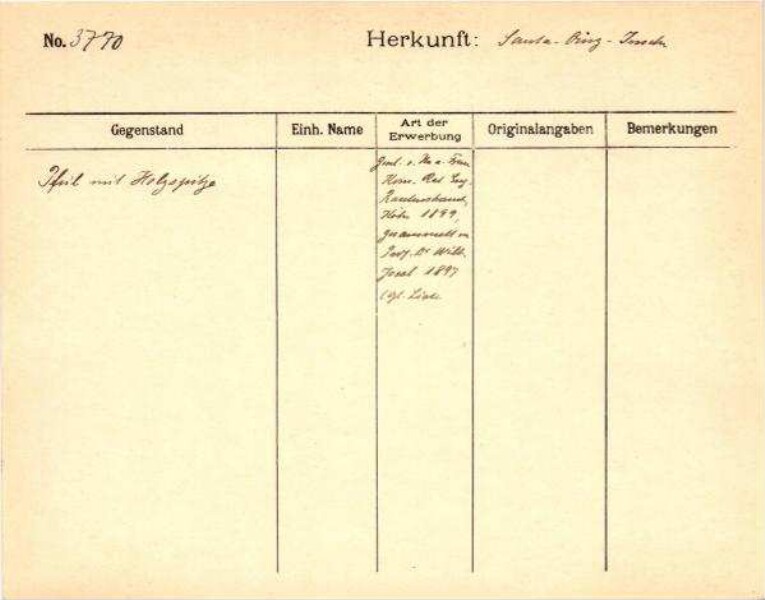 No. 3770 Herkunft: Santa-Cruz-Inseln
Gegenstand Einh. Name Art der Erwerbung Originalangaben Bemerkungen
Pfeil mit Holzspitze
Gesch. v. Hr. u. Frau
Kom. Rat Eug.
Rautenstrauch,
Köln 1899,
gesammelt v.
Prof. Dr Wilh.
Joest 1897